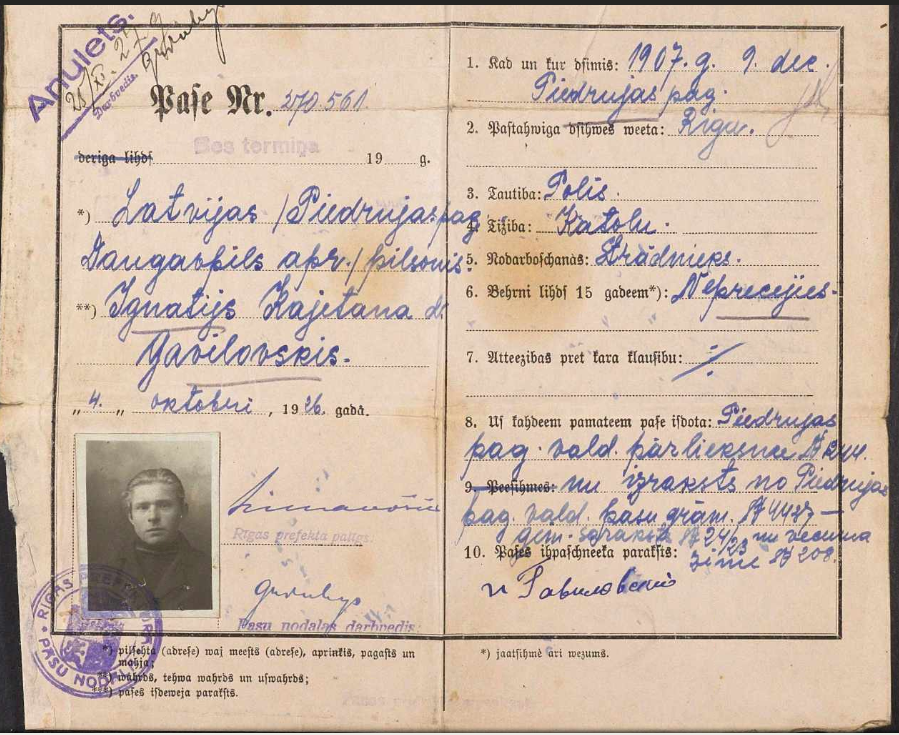 Anulets.
Darbvedis.
Pase Nr. 270.561
deriga lihds Bes termiņa 19 g.
*) Latvijas /Piedrujas pag
Daugavpils apr./ pilsonis.
**) Ignatijs Kajetana d.
Gavilovskis.
„4.„ oktobri, 1926. gadā.
Rīgas prefekta palīgs.
Pasu nodaļas darbvedis:
RIGAS PREFEKTURA
PASU NODAĻA
*) pilsehta (adrese) waj meests (adrese), aprinķis, pagasts un
mahja;
**) wahrds, tehwa wahrds un uswahrds;
***) pases isdeweja paraksts.
1. Kad un kur dsimis: 1907. g. 9. dec.
Piedrujas pag.
2. Pastahwiga dsihwes weeta: Rīga.
3. Tautiba: Polis.
4. Tiziba: Katoļu.
5. Nodarboschanās: Strādnieks.
6. Behrni lihds 15 gadeem*): Neprecējies.
7. Atteezibas pret kara klausibu: ·/·
8. Us kahdeem pamateem pase isdota: Piedrujas
pag. vald. pārliecsnu
9. Peesihmes: un izraksts no Piedrujas
pag. vald. pasu grām. № 4427 —
10. Pases ihpaschneeka paraksts: zīme № 209.
Гавиловскис
*) jaatsihmē ari wezums.